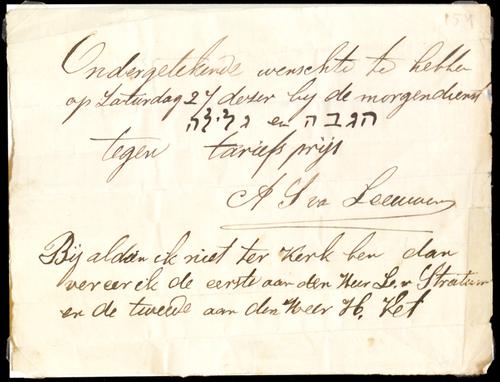 154
Ondergetekende wenschte te hebben
op Zaturdag 27 dezer bij de morgendienst
הגבה en גלילה
tegen tariefsprijs
A S va Leeuwen
Bij aldien ik niet ter Kerk ben dan
vereer ik de eerste aan den Heer Le. v Stratum
en de tweede aan den Heer H. Vet